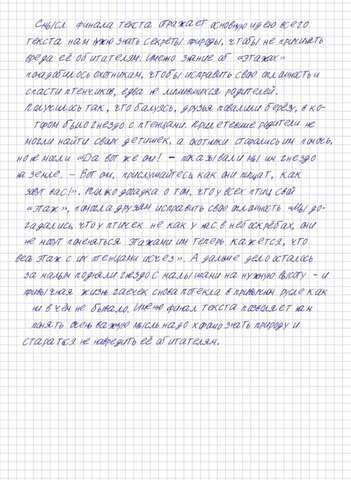 Смысл финала текста отражает основную идею всего
текста нам нужно знать секреты природы, чтобы не причинять
вреда её обитателям. Именно знание об «этажах»
понадобилось охотникам, чтобы исправить свою оплошность и
спасти птенчиков, едва не лишившихся родителей.
Получилось так, что балуясь, друзья повалили берёзу, в ко-
тором было гнездо с птенцами. Прилетевшие родители не
могли найти своих детишек, а охотники старались им помочь,
но не могли «Да вот же они! – показывали мы им гнездо
на земле. – Вот они, прислушайтесь как они пищат, как
зовут вас!». Только догадка о том, что у всех птиц свой
«этаж», помогла друзьям исправить свою оплошность «Мы до-
гадались, что у птичек не как у нас в небоскрёбах, они
не могут поменяться этажами им теперь кажется, что
весь этаж с их птенцами исчез». А дальше дело осталось
за малым подняли гнездо с малышами на нужную высоту – и
привычная жизнь гаечек снова потекла в привычном русле как
ни в чём не бывало. Именно финал текста позволяет нам
понять очень важную мысль надо хорошо знать природу и
стараться не навредить её обитателям.